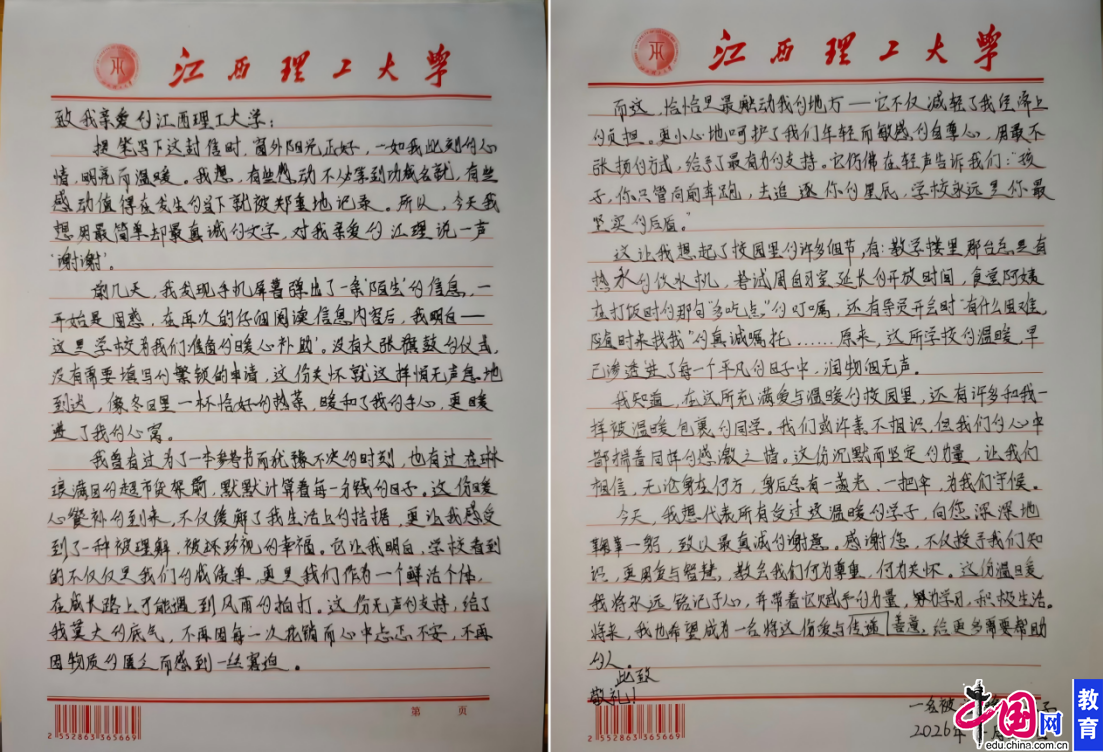 江西理工大学
致我亲爱的江西理工大学：
提笔写下这封信时，窗外阳光正好，一如我此刻的心
情，明亮而温暖。我想，有些感动不必等到功成名就，有些
感动值得在发生的当下就被郑重地记录。所以，今天我
想用最简单却最真诚的文字，对我亲爱的江理说一声
‘谢谢’。
前几天，我发现手机屏幕弹出了一条‘陌生’的信息，一
开始是困惑，在再次的仔细阅读信息内容后，我明白——
这是学校为我们准备的‘暖心补助’。没有大张旗鼓的仪式，
没有需要填写的繁琐的申请，这份关怀就这样悄无声息地
到达，像冬日里一杯恰好的热茶，暖和了我的手心，更暖
进了我的心窝。
我曾有过为了一本参考书而犹豫不决的时刻，也有过在琳
琅满目的超市货架前，默默计算着每一分钱的日子。这份暖
心餐补的到来，不仅缓解了我生活上的拮据，更让我感受
到了一种被理解，被珍视的幸福。它让我明白，学校看到
的不仅仅是我们的成绩单，更是我们作为一个鲜活个体，
在成长路上可能遇到风雨的拍打。这份无声的支持，给了
我莫大的底气，不再因每一次花销而心中忐忑不安，不再
因物质的匮乏而感到一丝窘迫。
第 页
2 552863 365669
江西理工大学
而这，恰恰是最触动我的地方——它不仅减轻了我经济上
的负担。更小心地呵护了我们年轻而敏感的自尊心，用最不
张扬的方式，给予了最有力的支持。它仿佛在轻声告诉我们：“孩
子，你只管向前奔跑，去追逐你的星辰，学校永远是你最
坚实的后盾。”
这让我想起了校园里的许多细节，有：教学楼里那台总是有
热水的饮水机，考试周自习室延长的开放时间，食堂阿姨
在打饭时的那句“多吃点。”的叮嘱，还有导员开会时“有什么困难，
随时来找我”的真诚嘱托……原来，这所学校的温暖，早
已渗透进了每一个平凡的日子中，润物细无声。
我知道，在这所充满爱与温暖的校园里，还有许多和我一
样被温暖包裹的同学。我们或许素不相识，但我们的心中
都揣着同样的感激之情。这份沉默而坚定的力量，让我们
相信，无论身在何方，身后总有一盏光、一把伞，为我们守候。
今天，我想代表所有受过这温暖的学子，向您，深深地
鞠躬一躬，致以最真诚的谢意。感谢您，不仅授予我们知
识，更用爱与智慧，教会我们何为尊重，何为关怀。这份温暖
我将永远铭记于心，并带着它赋予的力量，努力学习，积极生活。
将来，我也希望成为一名将这份爱与传递善意，给更多需要帮助
的人。
此致
敬礼！
一名被
2026年
2 552863 365669
中国网
edu.china.com.cn
教育